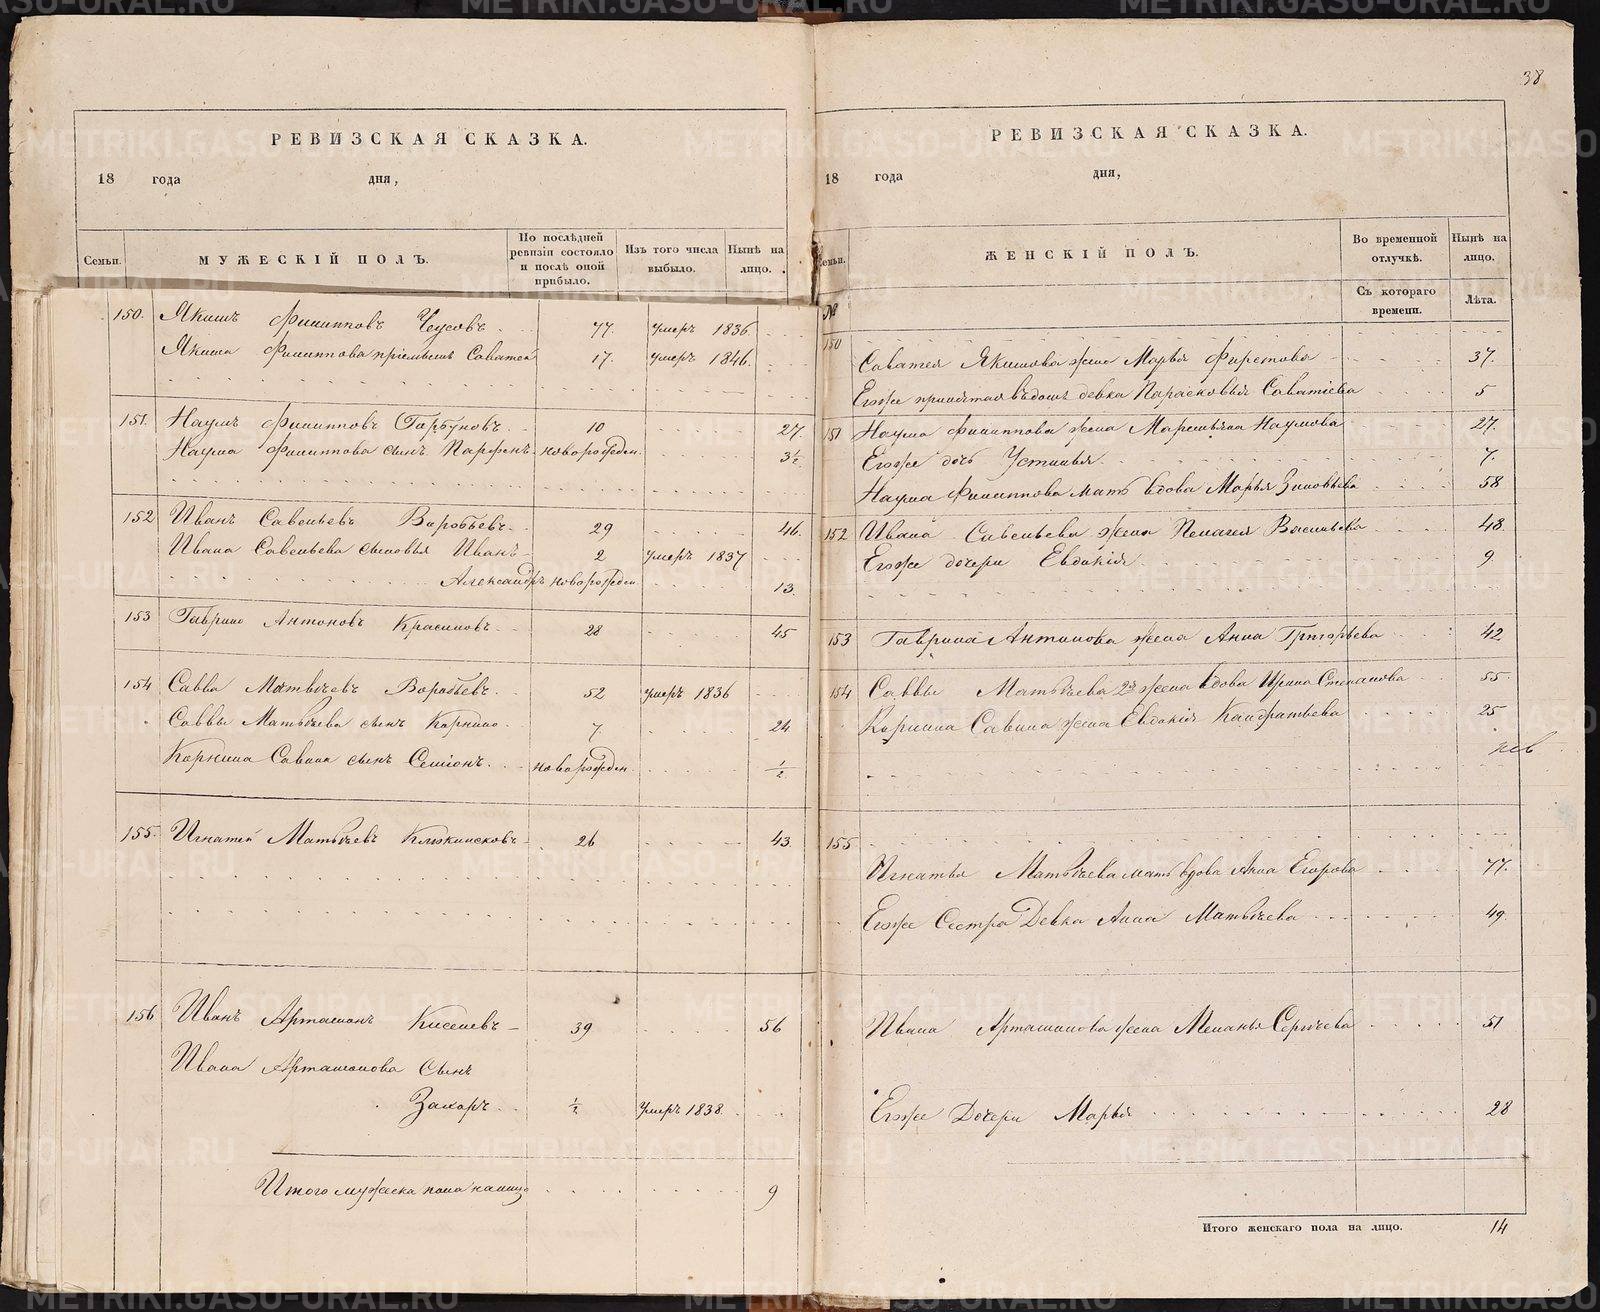 РЕВИЗСКАЯ СКАЗКА.
18 года дня,
Семьи.
МУЖЕСКІЙ ПОЛЪ.
По послѣдней ревизіи состояло и послѣ оной прибыло.
Изъ того числа выбыло.
Нынѣ на лицо.
150. Якимъ Филипповъ 77. умеръ 1836
Якима Филиппова пріемышъ Саватей 17. умеръ 1846.
151. Наумъ Филипповъ Горбуновъ 10 27.
Наума Филиппова сынъ Парфенъ новорожден. 3½
152 Иванъ Савельевъ Воробьевъ 29 46.
Ивана Савельева сыновья Иванъ 2 умеръ 1837
Александръ новорожден. 13.
153 Гаврило Антоновъ Красиловъ 28 45
154 Савва Матвѣевъ Воробьевъ 52 умеръ 1836
Саввы Матвѣева сынъ Корнило 7 24
Корнила Савина сынъ Семіонъ новорожден. ½
155. Игнатей Матвѣевъ 26 43.
156 Иванъ Арташонъ Киселевъ 39 56
Ивана Арташонова сынъ
Захаръ ½ умеръ 1838.
Итого мужеска пола налицо 9
38
РЕВИЗСКАЯ СКАЗКА.
18 года дня,
Семьи.
ЖЕНСКІЙ ПОЛЪ.
Во временной отлучкѣ.
Нынѣ на лицо.
№
Съ котораго времени.
Лѣта.
150
Саватея Якимова жена Марья 37.
Егоже девка Парасковья Саватіева 5
151 Наума Филиппова жена Наумова 27.
Егоже дочь Устинья 7.
Наума Филиппова мать вдова Марья Зиновьева 58
152 Ивана Савельева жена Пелагея Васильева 48
Егоже дочери Евдокія 9.
153 Гаврила Антонова жена Анна Григорьева 42
154 Саввы Матвѣева 2я жена вдова Ирина Степанова 55.
Корнила Савина жена Евдокія Кандратьева 25
155
Игнатья Матвѣева мать вдова Анна Егорова 77.
Егоже Сестра Девка Анна Матвѣева 49.
Ивана Арташонова жена Меланья Сергѣева 51
Егоже Дочери Марья 28
Итого женскаго пола на лицо. 14
METRIKI.GASO-URAL.RU